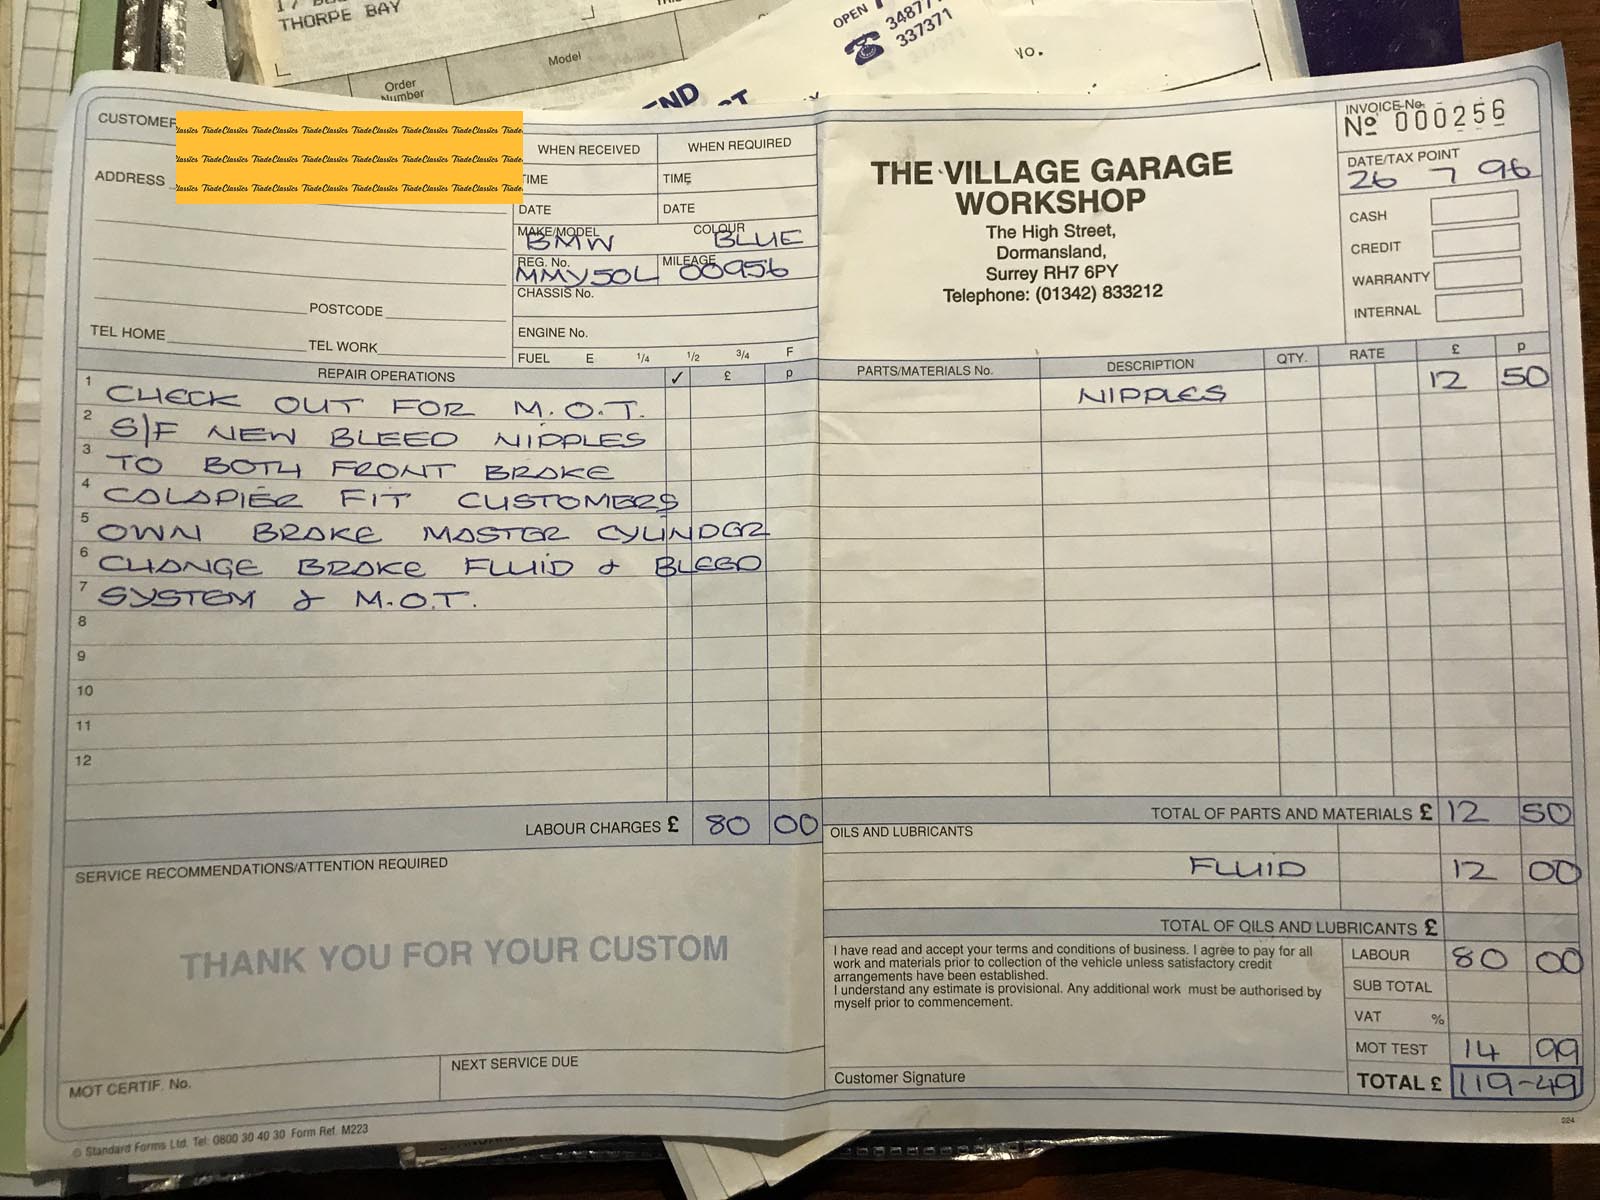 THORPE BAY
Order
Number
Model
OPEN
337371
CUSTOMER
TradeClassics TradeClassics TradeClassics TradeClassics TradeClassics TradeClassics
TradeClassics TradeClassics TradeClassics TradeClassics TradeClassics TradeClassics
TradeClassics TradeClassics TradeClassics TradeClassics TradeClassics TradeClassics
ADDRESS
POSTCODE
TEL HOME
TEL WORK
WHEN RECEIVED WHEN REQUIRED
TIME TIME
DATE DATE
MAKE/MODEL BMW COLOUR BLUE
REG. No. MMY50L MILEAGE 00956
CHASSIS No.
ENGINE No.
FUEL E 1/4 1/2 3/4 F
THE VILLAGE GARAGE
WORKSHOP
The High Street,
Dormansland,
Surrey RH7 6PY
Telephone: (01342) 833212
INVOICE No.
Nº 000256
DATE/TAX POINT
26 7 96
CASH
CREDIT
WARRANTY
INTERNAL
REPAIR OPERATIONS ✓ £ p
1 CHECK OUT FOR M.O.T.
2 S/F NEW BLEED NIPPLES
3 TO BOTH FRONT BRAKE
4 CALAPIER FIT CUSTOMERS
5 OWN BRAKE MASTER CYLINDER
6 CHANGE BRAKE FLUID & BLEED
7 SYSTEM & M.O.T.
8
9
10
11
12
LABOUR CHARGES £ 80 00
PARTS/MATERIALS No. DESCRIPTION QTY. RATE £ p
NIPPLES 12 50
TOTAL OF PARTS AND MATERIALS £ 12 50
OILS AND LUBRICANTS
FLUID 12 00
TOTAL OF OILS AND LUBRICANTS £
SERVICE RECOMMENDATIONS/ATTENTION REQUIRED
THANK YOU FOR YOUR CUSTOM
MOT CERTIF. No.
NEXT SERVICE DUE
I have read and accept your terms and conditions of business. I agree to pay for all
work and materials prior to collection of the vehicle unless satisfactory credit
arrangements have been established.
I understand any estimate is provisional. Any additional work must be authorised by
myself prior to commencement.
Customer Signature
LABOUR 80 00
SUB TOTAL
VAT %
MOT TEST 14 99
TOTAL £ 119-49
© Standard Forms Ltd. Tel: 0800 30 40 30 Form Ref. M223
024